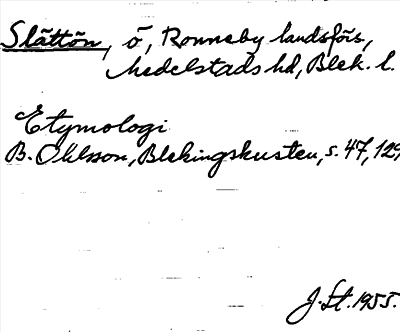 Slättön, ö, Ronneby landsförs,
Medelstads hd, Blek. l.
Etymologi
B. Ohlsson, Blekingskusten, s. 47, 129
J. St. 1955.